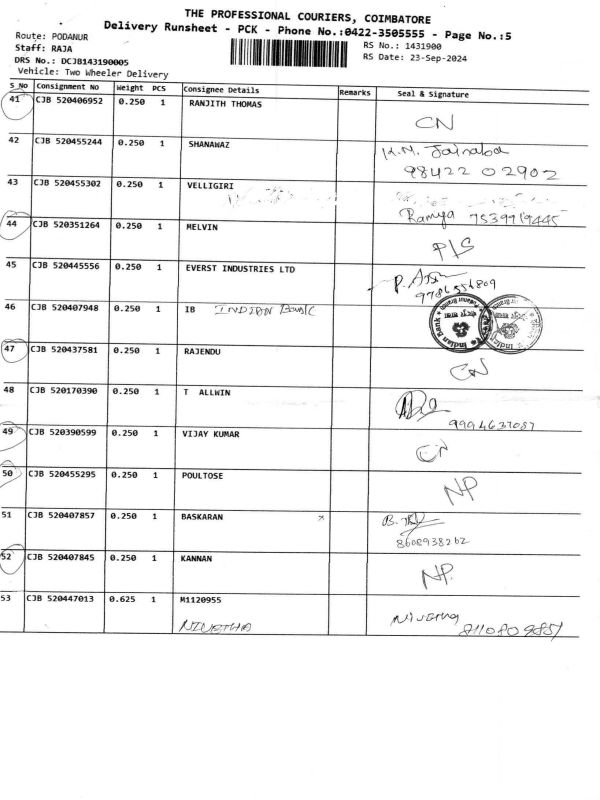 THE PROFESSIONAL COURIERS, COIMBATORE
Delivery Runsheet - PCK - Phone No.:0422-3505555 - Page No.:5
Route: PODANUR
RS No.: 1431900
Staff: RAJA
RS Date: 23-Sep-2024
DRS No.: DCJB143190005
Vehicle: Two Wheeler Delivery
S_No Consignment No Weight PCS Consignee Details Remarks Seal & Signature
41 CJB 520406952 0.250 1 RANJITH THOMAS
CN
42 CJB 520455244 0.250 1 SHANAWAZ K.M. Jainaba
98422 02902
43 CJB 520455302 0.250 1 VELLIGIRI
Ramya 7539919445
44 CJB 520351264 0.250 1 MELVIN
P/S
45 CJB 520445556 0.250 1 EVERST INDUSTRIES LTD
46 CJB 520407948 0.250 1 IB INDIAN Bank
Indian Bank
47 CJB 520437581 0.250 1 RAJENDU
CN
48 CJB 520170390 0.250 1 T ALLWIN
49 CJB 520390599 0.250 1 VIJAY KUMAR
CN
50 CJB 520455295 0.250 1 POULTOSE
NP
51 CJB 520407857 0.250 1 BASKARAN
8608938262
52 CJB 520407845 0.250 1 KANNAN
NP.
53 CJB 520447013 0.625 1 M1120955
NIVETHA Nivetha